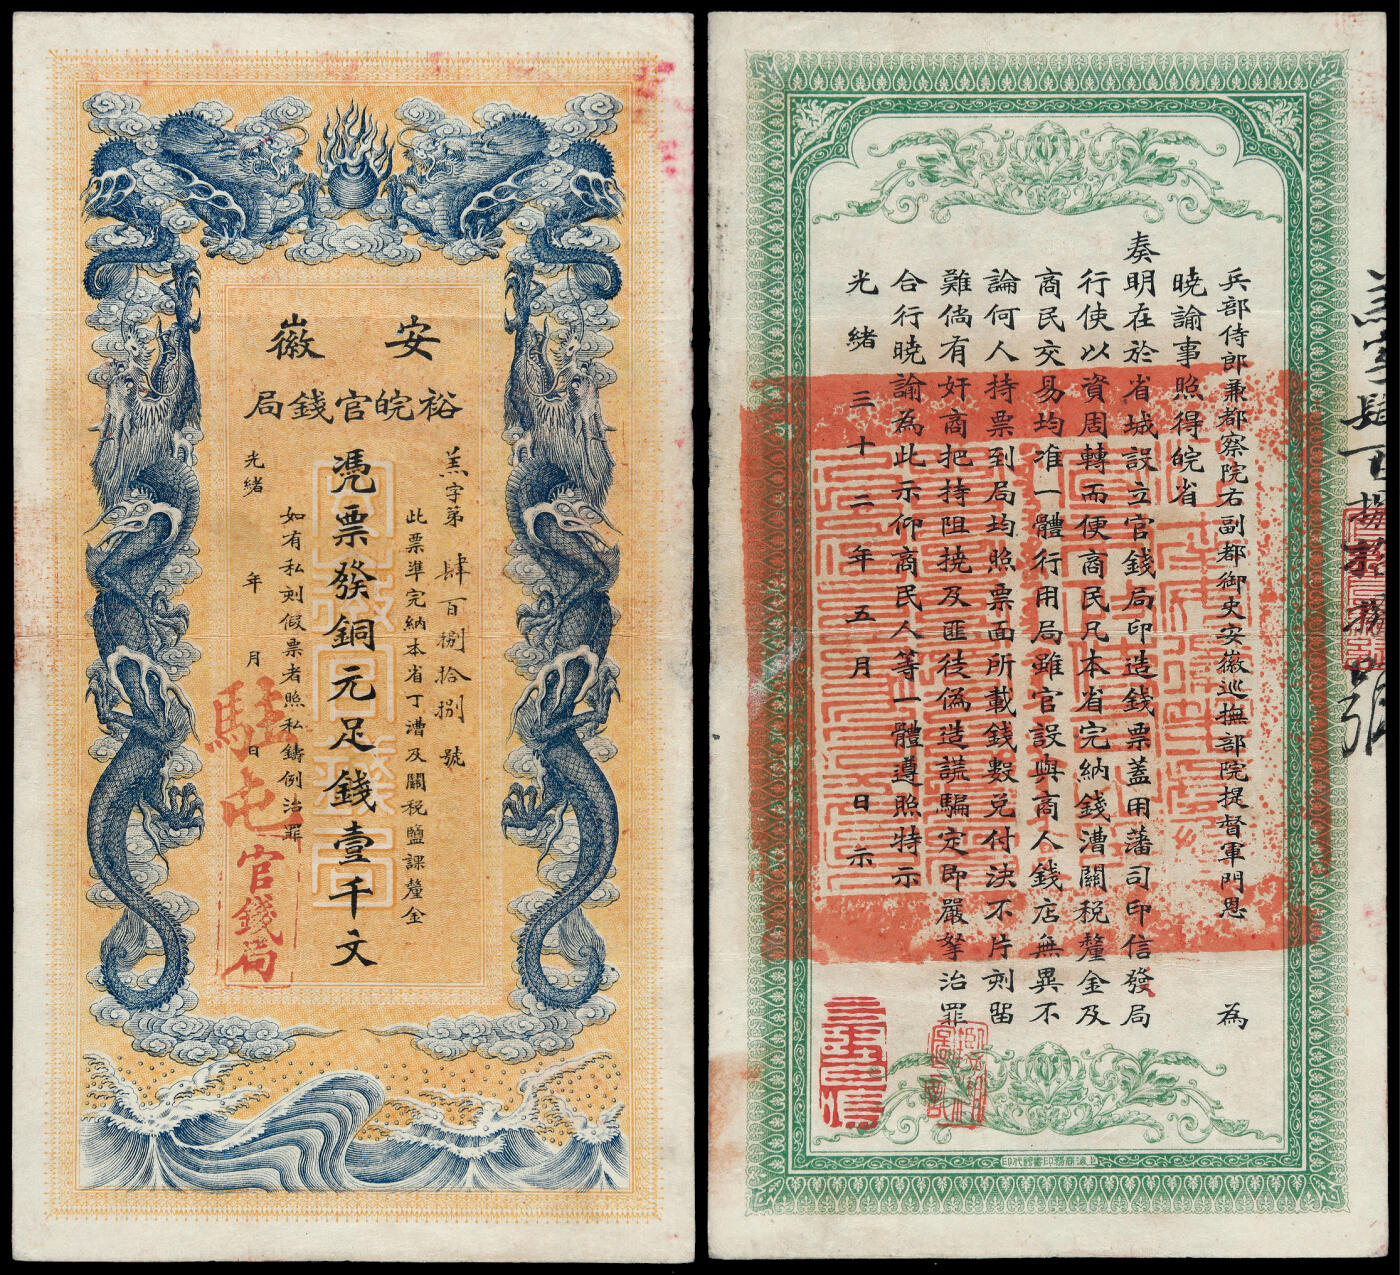 安徽
裕皖官錢局
羔字第肆百捌拾捌號
此票準完納本省丁漕及關稅鹽課釐金
憑票發銅元足錢壹千文
如有私刻假票者照私鑄例治罪
光緒 年 月 日
駐屯官錢局
兵部侍郎兼都察院右副都御史安徽巡撫部院提督軍門恩 為
曉諭事照得皖省
奏明在於省城設立官錢局印造錢票蓋用藩司印信發局
行使以資周轉而便商民凡本省完納錢漕關稅釐金及
商民交易均准一體行用局雖官設與商人錢店無異不
論何人持票到局均照票面所載錢數兌付決不片刻留
難倘有奸商把持阻撓及匪徒偽造謊騙定即嚴拏治罪
合行曉諭為此示仰商民人等一體遵照特示
光緒三十二年五月 日示
上海商務印書館代印
羔字肆百捌拾捌號